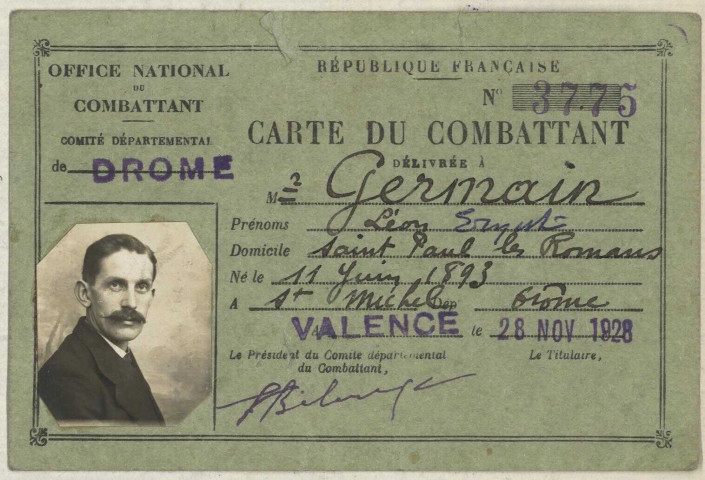 OFFICE NATIONAL
DU
COMBATTANT
COMITÉ DÉPARTEMENTAL
de DROME
RÉPUBLIQUE FRANÇAISE
N° 37.75
CARTE DU COMBATTANT
DÉLIVRÉE À
M Germain
Prénoms Léon
Domicile Saint Paul les Romans
Né le 11 Juin 1893
A St Michel Dép Drôme
A VALENCE le 28 NOV 1928
Le Président du Comité départemental
du Combattant,
Le Titulaire,